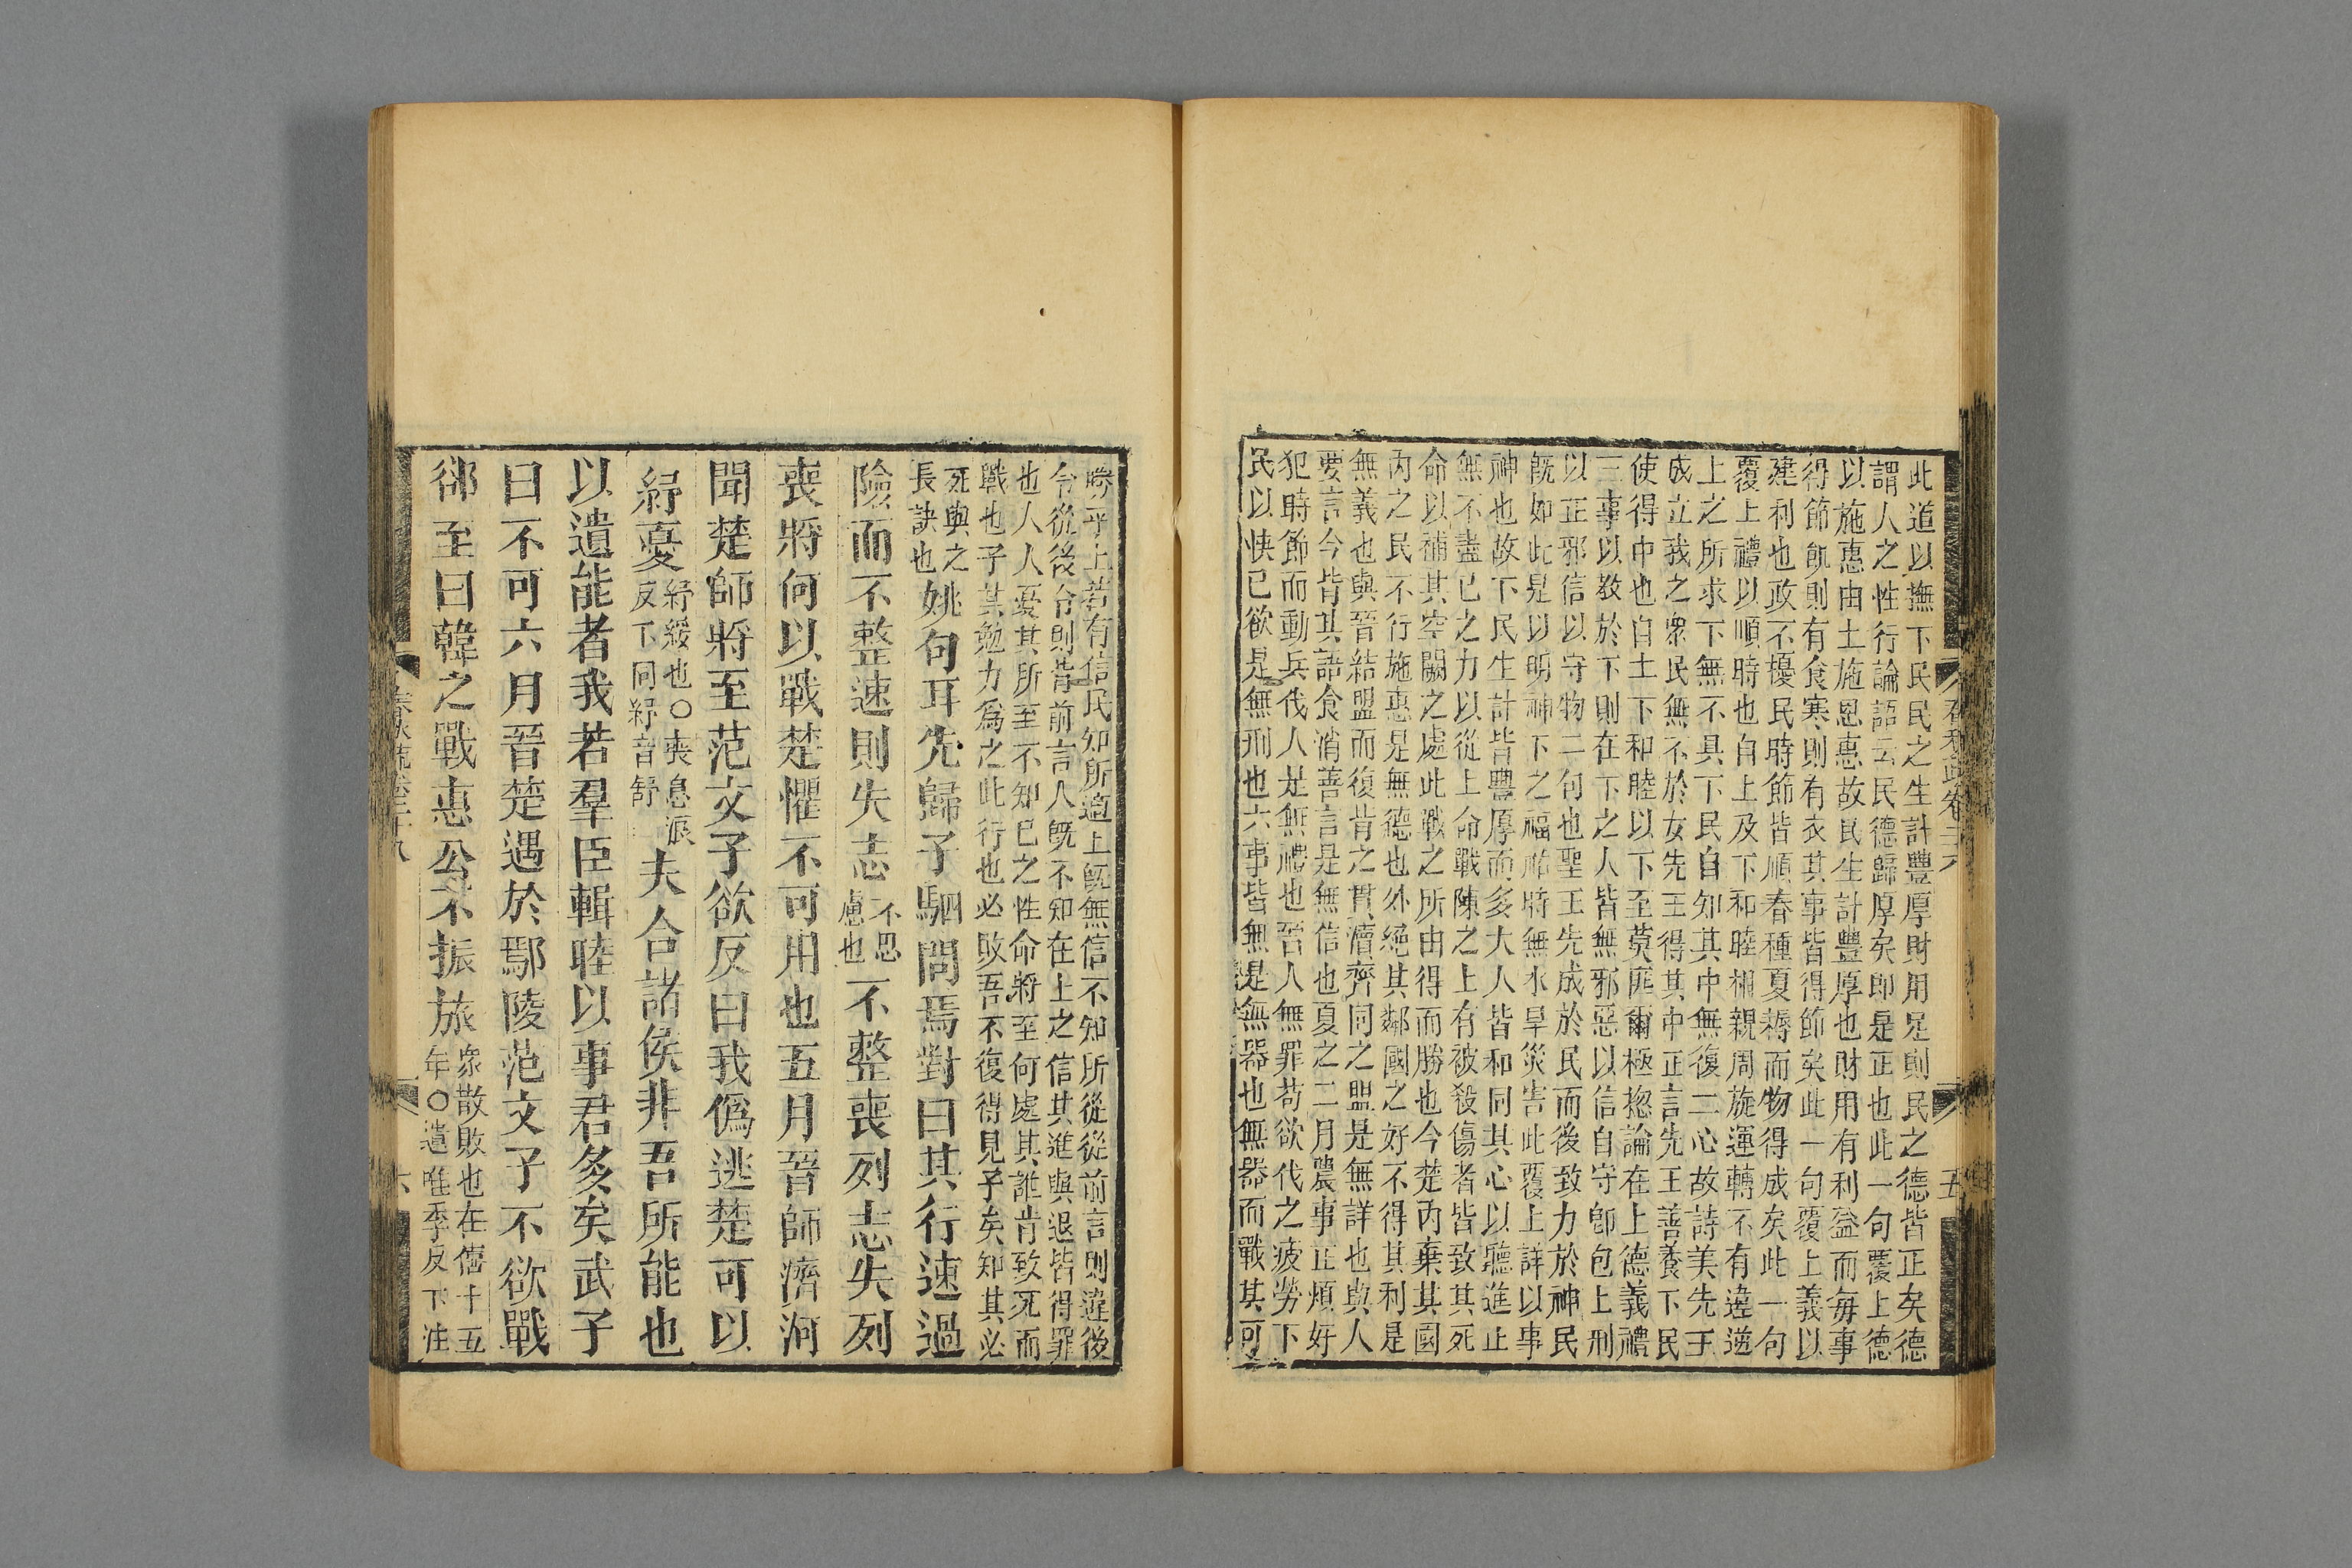 此道以撫下民民之生計豐厚財用足則民之德皆正矣德
謂人之性行論語云民德歸厚矣即是正也此一句覆上德
以施惠由上施恩惠故民生計豐厚也財用有利益而每事
得節飢則有食寒則有衣其事皆得節矣此一句覆上義以
建利也政不擾民時節皆順春種夏耨而物得成矣此一句
覆上禮以順時也自上及下和睦相親周旋運轉不有違逆
上之所求下無不具下民自知其中無復二心故詩美先王
成立我之眾民無不於女先王得其中正言先王善養下民
使得中也自上下和睦以下至莫匪爾極揔論在上德義禮
三事以教於下則在下之人皆無邪惡以信自守卽包上刑
以正邪信以守物二句也聖王先成於民而後致力於神民
旣如此是以明神下之福祐時無水旱災害此覆上詳以事
神也故下民生計皆豐厚而多大人皆和同其心以聽進止
無不盡已之力以從上命戰陳之上有被殺傷者皆致其死
命以補其空闕之處此戰之所由得而勝也今楚內棄其國
內之民不行施惠是無德也外絕其鄰國之好不得其利是
無義也與晉結盟而復背之貫瀆齊同之盟是無詳也與人
要言今背其語食消善言是無信也夏之二月農事正煩好
犯時節而動兵伐人是無禮也晉人無罪苟欲伐之疲勞下
民以快已欲是無刑也六事皆無是無器也無器而戰其可
勝乎上若有信民知所適上旣無信不知所從從前言則違後
令從後令則背前言人旣不知在上之信其進與退皆得罪
也人人憂其所至不知已之性命將至何處其誰肯致死而
戰也子其勉力爲之此行也必敗吾不復得見子矣知其必
死與之
長訣也
姚句耳先歸子駟問焉對曰其行速過
險而不整速則失志
不思
慮也
不整喪列志失列
喪將何以戰楚懼不可用也五月晉師濟河
聞楚師將至范文子欲反曰我僞逃楚可以
紓憂
紓緩也○喪息浪
反下同紓音舒
夫合諸侯非吾所能也
以遺能者我若羣臣輯睦以事君多矣武子
曰不可六月晉楚遇於鄢陵范文子不欲戰
郤至曰韓之戰惠公不振旅
眾散敗也在僖十五
年○遺唯季反下注